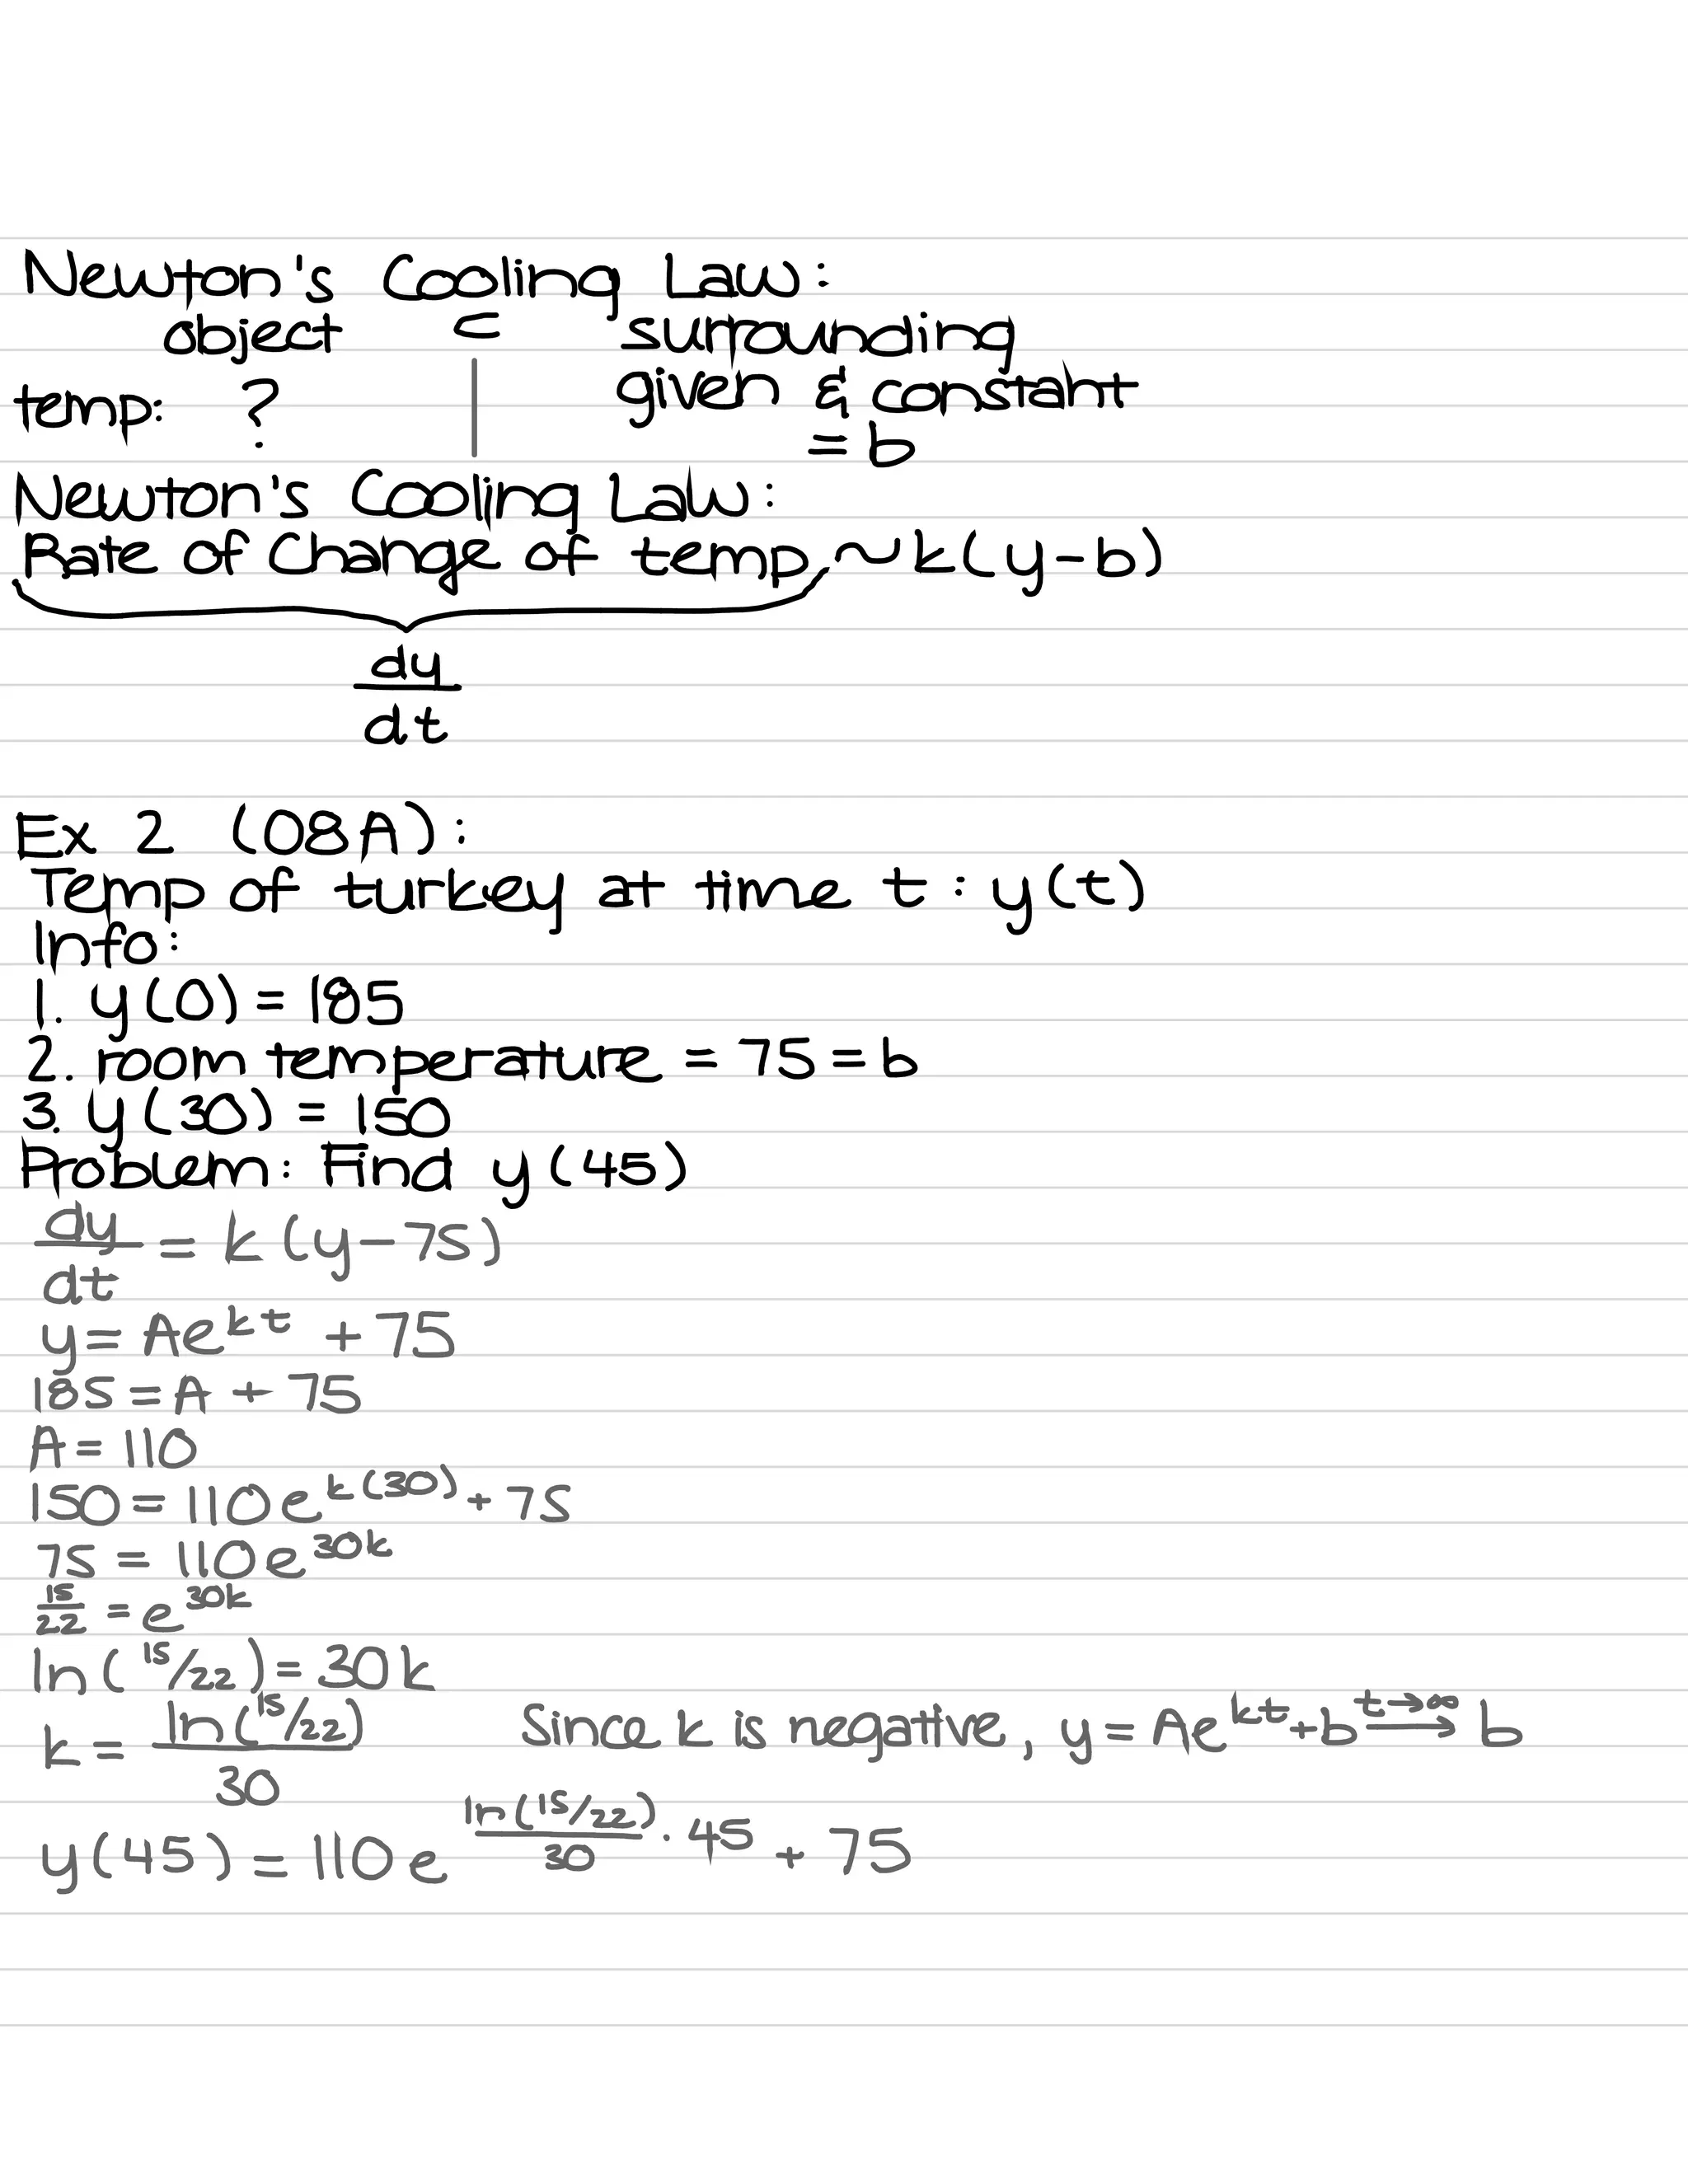 Newton's Cooling Law:
object ⊂ surrounding
temp: ? | given & constant
= b
Newton's Cooling Law:
Rate of Change of temp ~ k(y-b)
dy/dt
Ex 2 (08A):
Temp of turkey at time t: y(t)
Info:
1. y(0) = 185
2. room temperature = 75 = b
3. y(30) = 150
Problem: Find y(45)
dy/dt = k(y-75)
y = Ae^{kt} + 75
185 = A + 75
A = 110
150 = 110e^{k(30)} + 75
75 = 110e^{30k}
15/22 = e^{30k}
ln(15/22) = 30k
k = ln(15/22)/30 Since k is negative, y = Ae^{kt} + b \xrightarrow{t→∞} b
y(45) = 110e^{ln(15/22)/30 · 45} + 75